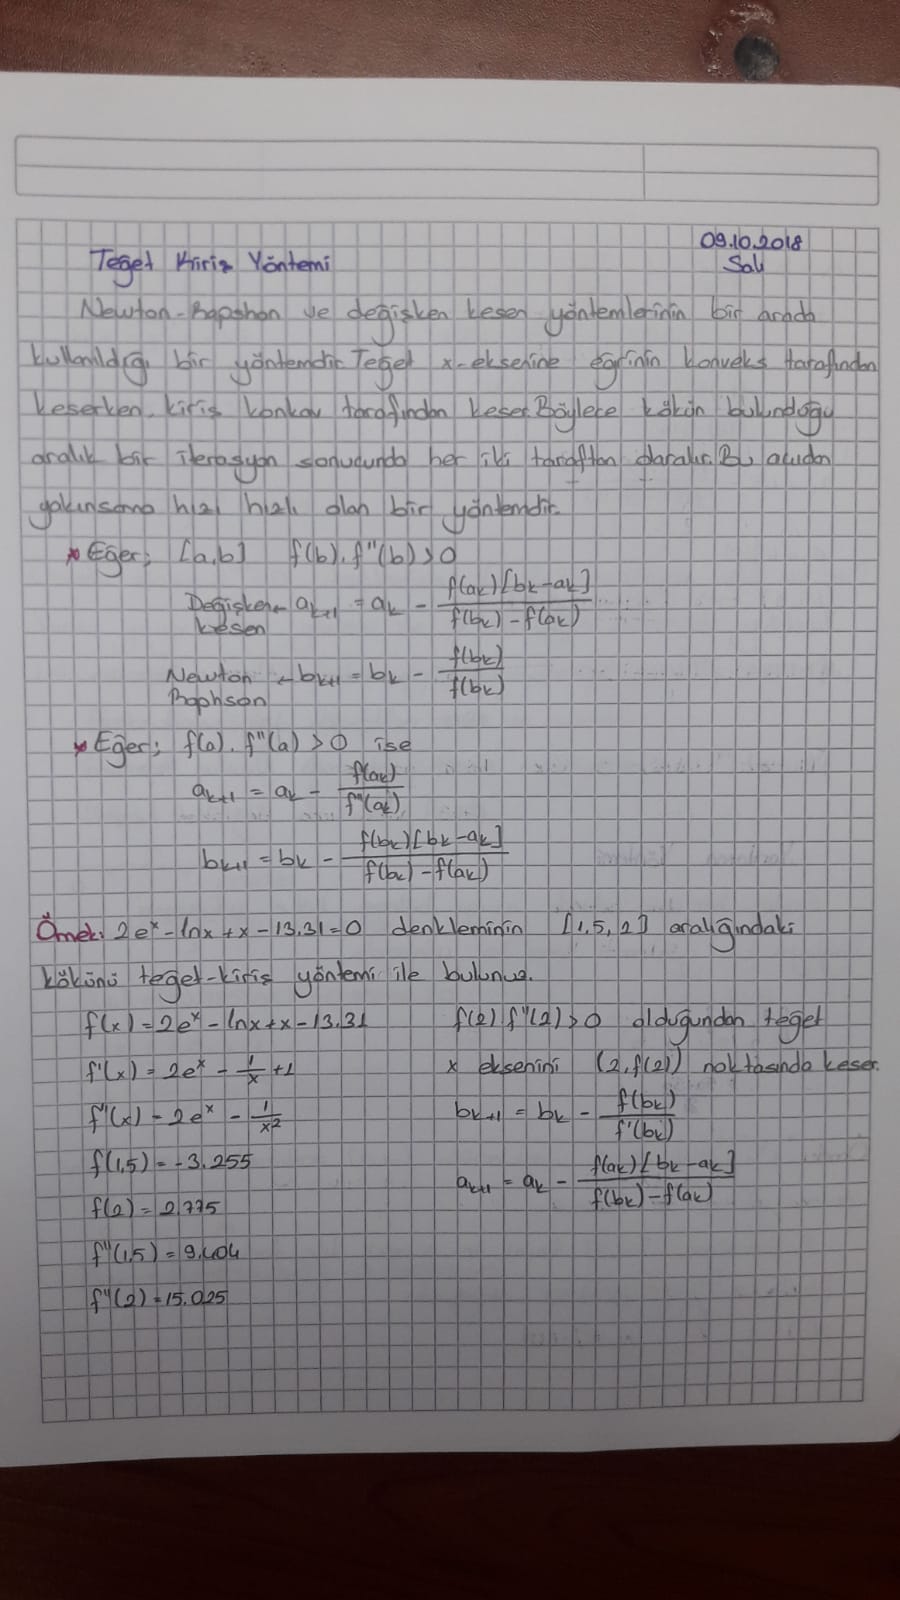 09.10.2018
Salı
Teğet Kiriş Yöntemi
Newton-Rapshon ve değişken kesen yöntemlerinin bir arada
kullanıldığı bir yöntemdir. Teğet x-eksenine eğrinin konveks tarafından
keserken, kiriş konkav tarafından keser. Böylece kökün bulunduğu
aralık bir iterasyon sonucunda her iki taraftan daralır. Bu açıdan
yakınsama hızı hızlı olan bir yöntemdir.
* Eğer; [a,b] f(b).f''(b)>0
Değişken kesen - a_{k+1} = a_k - \frac{f(a_k)[b_k-a_k]}{f(b_k)-f(a_k)}
Newton Raphson - b_{k+1} = b_k - \frac{f(b_k)}{f(b_k)}
* Eğer; f(a).f''(a)>0 ise
a_{k+1} = a_k - \frac{f(a_k)}{f''(a_k)}
b_{k+1} = b_k - \frac{f(b_k)[b_k-a_k]}{f(b_k)-f(a_k)}
Örnek: 2e^x-lnx+x-13,31=0 denkleminin [1,5,2] aralığındaki
kökünü teğet-kiriş yöntemi ile bulunuz.
f(x)=2e^x-lnx+x-13.31
f'(x)=2e^x-\frac{1}{x}+1
f''(x)=2e^x-\frac{1}{x^2}
f(1,5)=-3.255
f(2)=2,775
f''(1,5)=9,404
f''(2)=15.025
f(2) f''(2)>0 olduğundan teğet
x eksenini (2,f(2)) noktasında keser.
b_{k+1} = b_k - \frac{f(b_k)}{f'(b_k)}
a_{k+1} = a_k - \frac{f(a_k)[b_k-a_k]}{f(b_k)-f(a_k)}